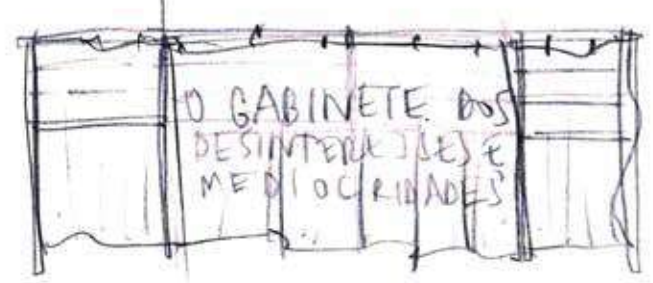 O GABINETE DOS
DESINTERESSES E
MEDIOCRIDADES